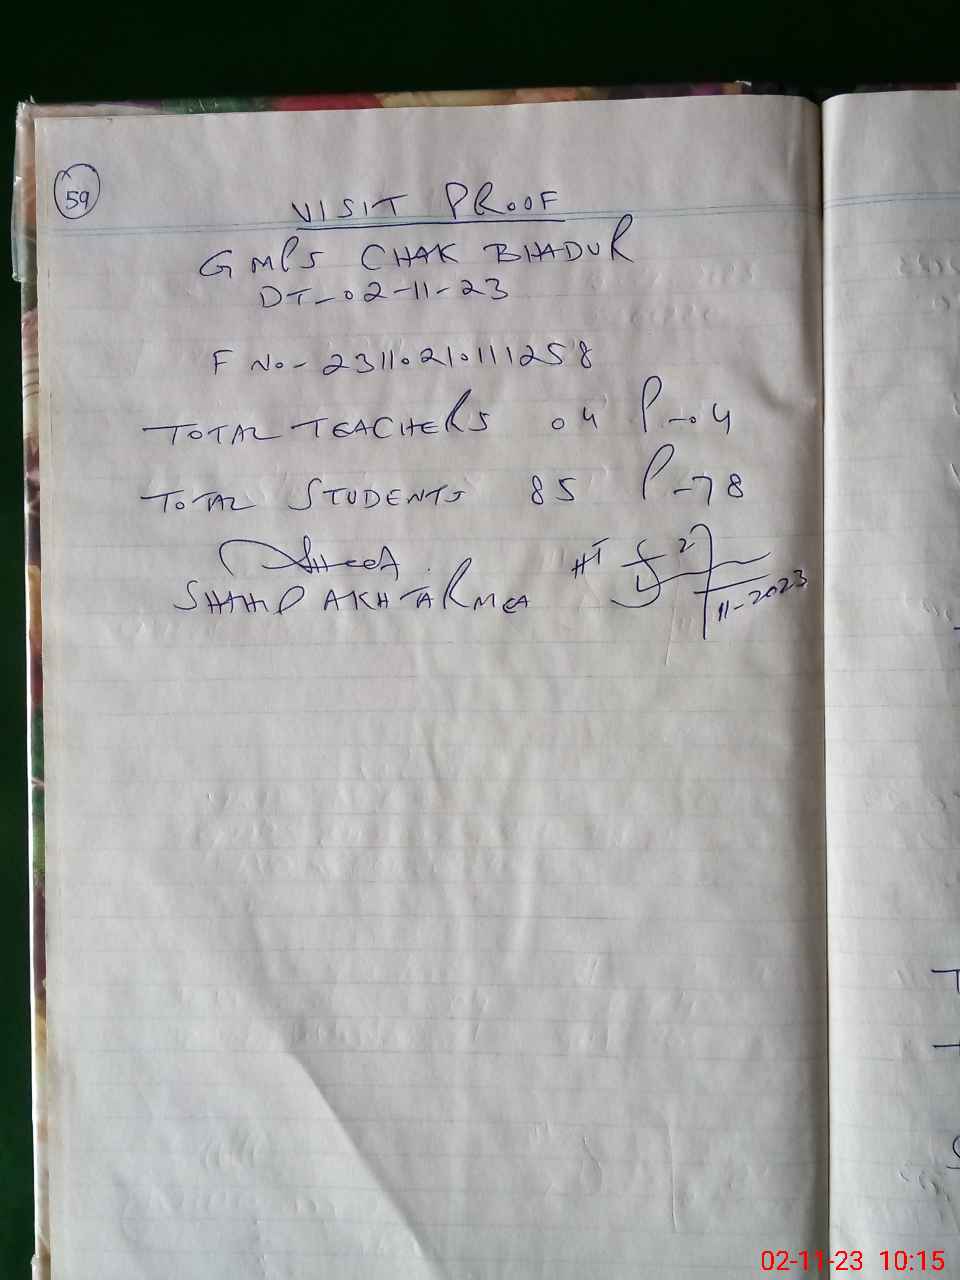 59
VISIT PROOF
GMPS CHAK BHADUR
DT-02-11-23
F No- 23110210111258
TOTAL TEACHERS 04 P-04
TOTAL STUDENTS 85 P-78
HT 2
11-2023
SHAHID AKHTAR MEA
02-11-23 10:15